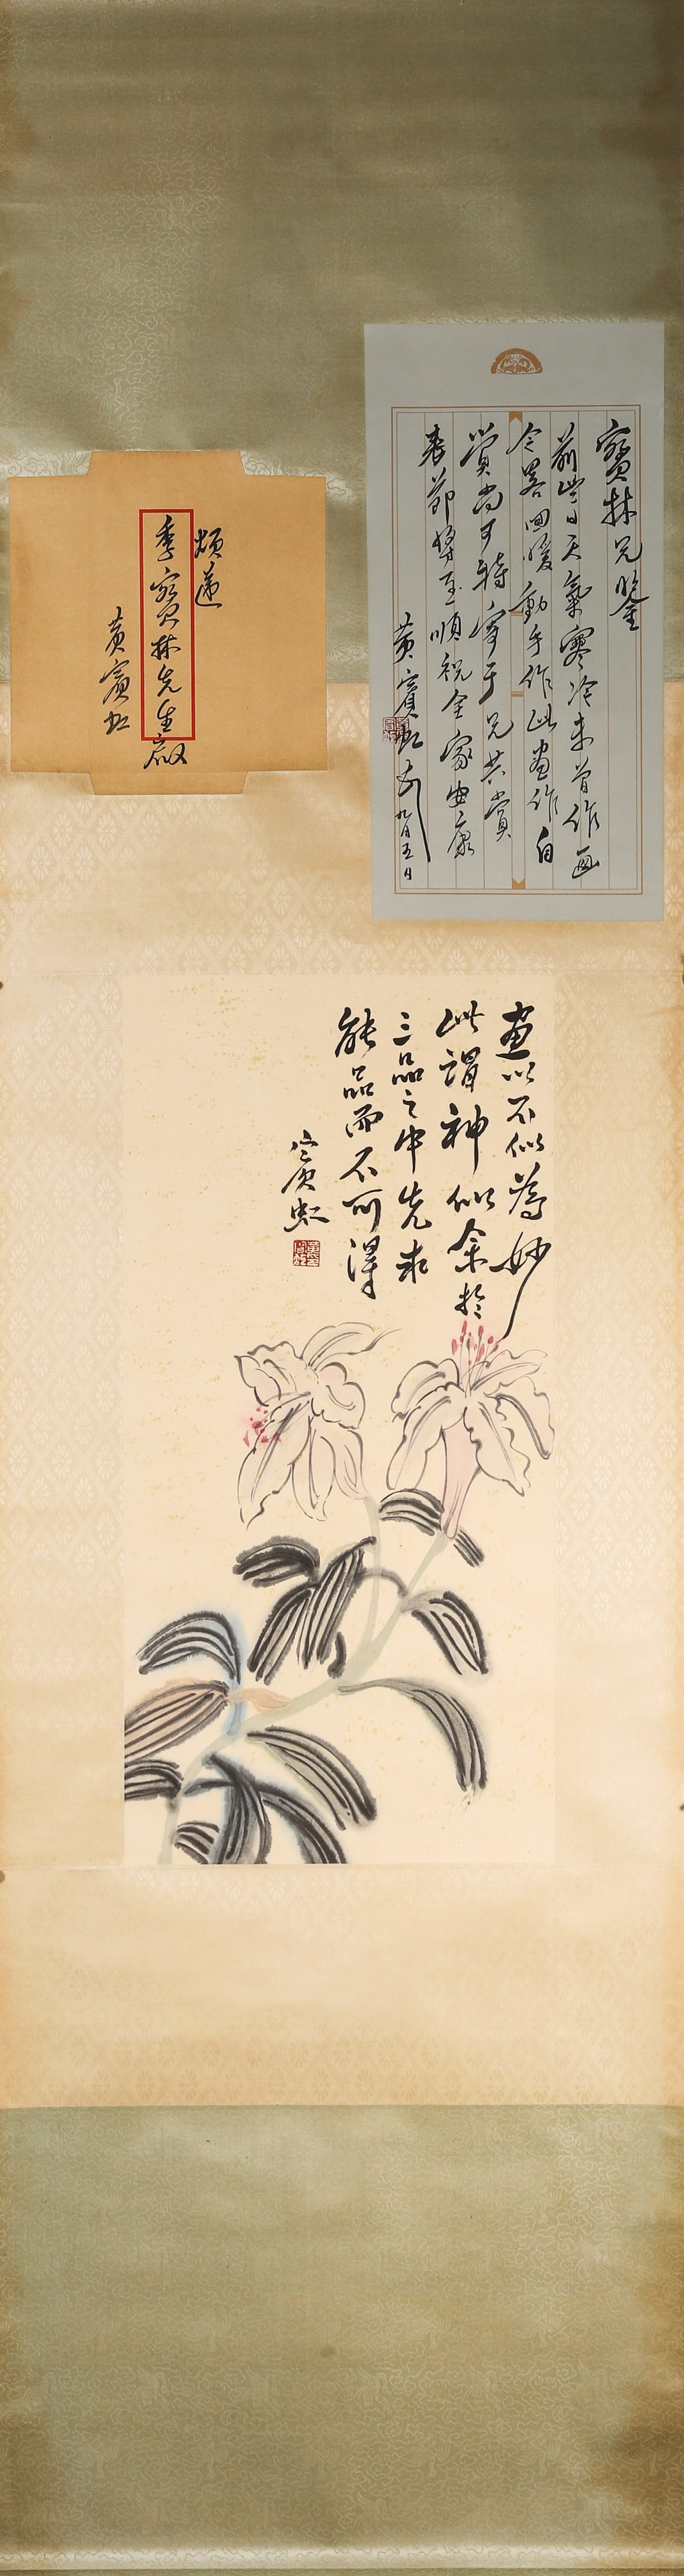 寶林兄鑒
前些日天氣寒冷未曾作画
今畧回暖動手作此畫作自
賞尚可轉寄于兄共賞
春節將至順祝全家安康
黃賓虹 九月五日
煩遞
季寶林先生啟
黃賓虹
畫以不似為妙
此謂神似余於
三品之中先求
能品而不可得
賓虹